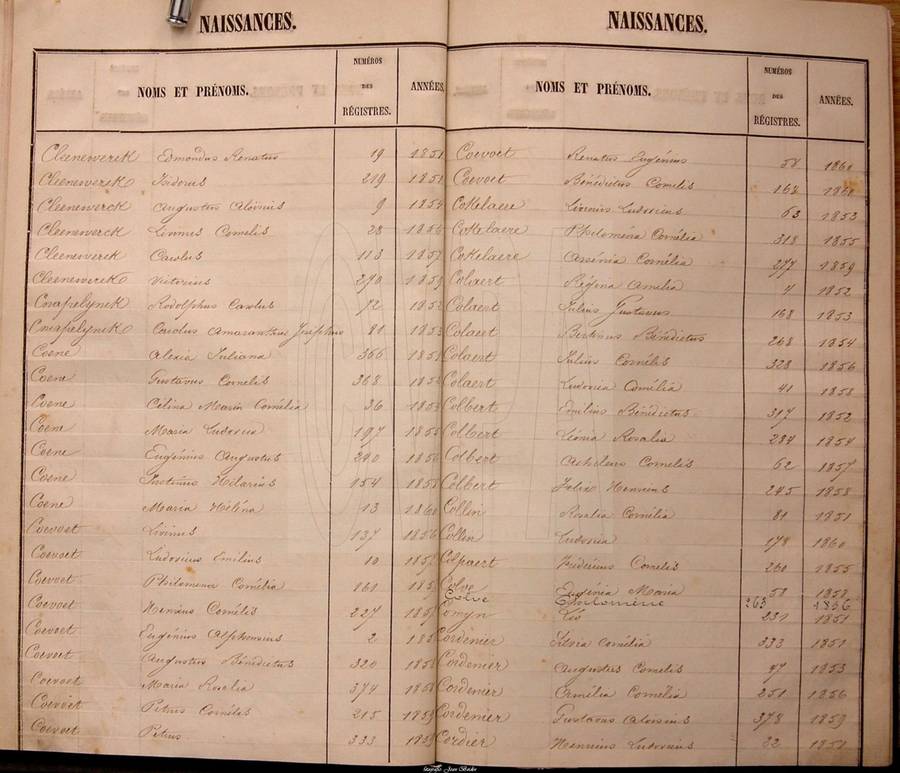 NAISSANCES.
NOMS ET PRÉNOMS. NUMÉROS DES RÉGISTRES. ANNÉES
Cleenewerck Edmondus Renatus 19 1851
Cleenewerck Isidorus 219 1851
Cleenewerck Augustus Aloisius 9 1854
Cleenewerck Livinus Cornelis 28 1856
Cleenewerck Carolus 113 1857
Cleenewerck Victorius 270 1859
Cnapelynck Rodolphus Carolus 72 185
Cnapelynck Carolus Amarantha Josephus 81 185
Coene Alexia Juliana 366 1851
Coene Gustavus Cornelis 368 1852
Coene Celina Maria Cornélia 36 185
Coene Maria Ludovica 197 1855
Coene Eugénius Augustus 240 1856
Coene Justinus Hilarius 154 1858
Coene Maria Hélèna 13 1860
Coevoet Livinus 137 1856
Coevoet Ludovicus Emilius 10 1857
Coevoet Philomena Cornélia 161 185
Coevoet Henricus Cornélis 227 185
Coevoet Eugénius Alphonsius 2 185
Coevoet Augustus Bénédictus 320 185
Coevoet Maria Rosalia 374 1858
Coevoet Petrus Cornélis 215 1859
Coevoet Petrus 333 1859
NAISSANCES.
NOMS ET PRÉNOMS. NUMÉROS DES RÉGISTRES. ANNÉES.
Coevoet Renatus Eugénius 58 1860
Coevoet Bénédictus Cornelis 162 1860
Cokelaere Livinus Ludovicus 63 1853
Cokelaere Philomèna Cornélia 318 1855
Cokelaere Arsénia Cornélia 277 1859
Colaert Régina Amelia 4 1852
Colaert Julius Gustavus 168 1853
Colaert Bertinus Bénédictus 268 1854
Colaert Julius Cornélis 328 1856
Colaert Ludovica Cornélia 41 1858
Colbert Emilius Bénédictus 317 1852
Colbert Léonia Rosalia 284 1854
Colbert Achileus Cornelis 62 1857
Colbert Julius Henricus 245 1858
Collen Rosalia Cornélia 81 1851
Collen Ludovica 178 1860
Colpaert Fidericus Cornelis 260 1855
Colve Eugénia Maria 58 1858
Colve 263 1856
Comyn Léo 231 1851
Cordenier Maria Cornélia 333 1851
Cordenier Augustus Cornelis 47 1853
Cordenier Camélia Cornélia 251 1856
Cordenier Gustavus Aloisius 378 1859
Cordier Henricus Ludovicus 32 1851